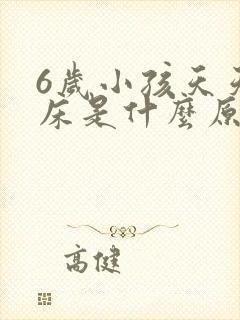 6歲小孩天天
床是什麼原
高健